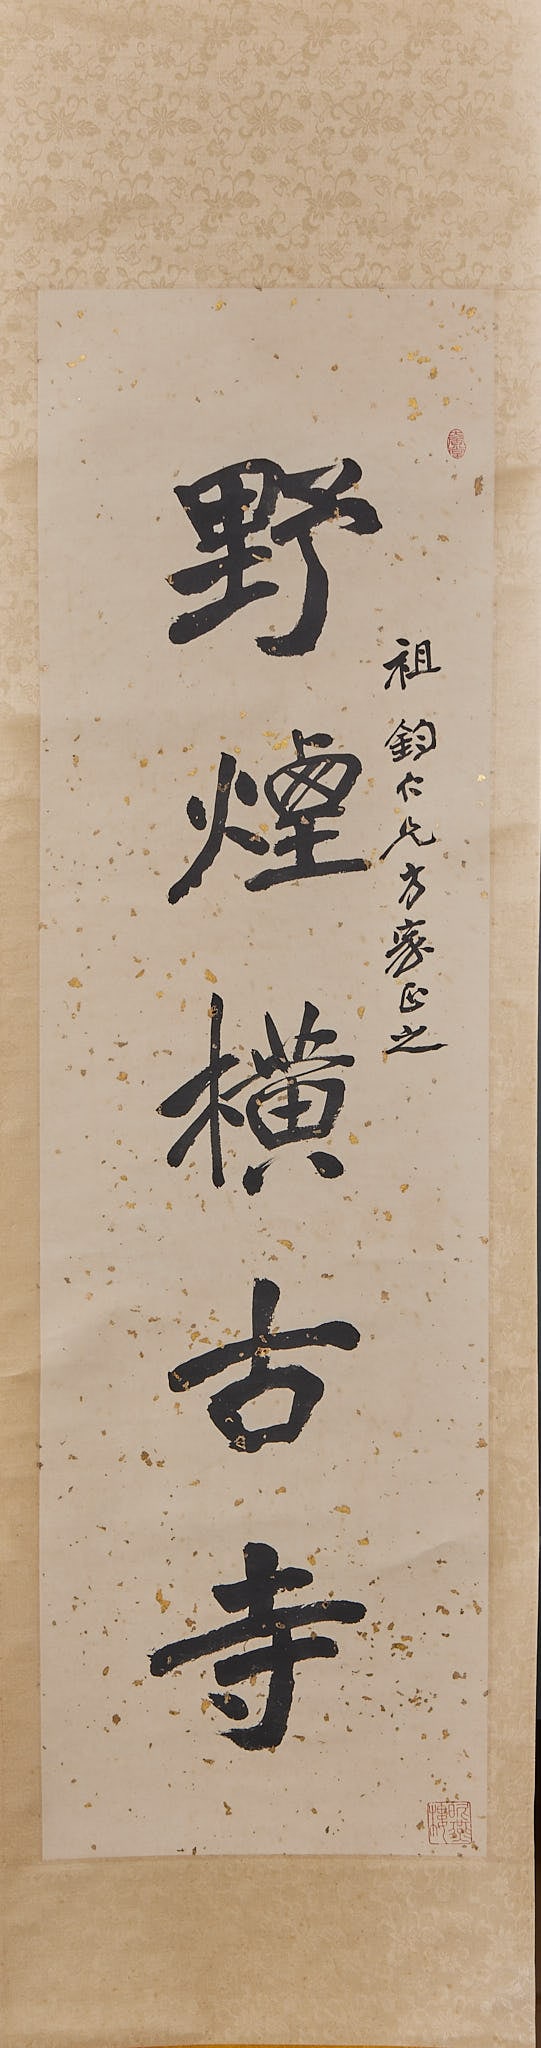 祖鈞仁兄方家正之
野煙橫古寺